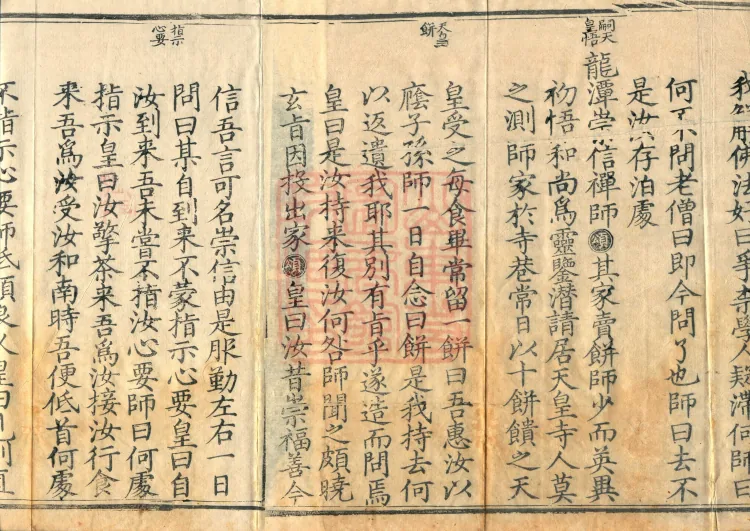 用佛法如曰爭柰學人疑滯何師曰
何不問老僧曰即今問了也師曰去不
是汝存泊處
嗣天
皇悟
龍潭崇信禪師頌其家賣餅師少而英異
初悟和尚爲靈鑒潜請居天皇寺人莫
之測師家於寺巷常日以十餅饋之天
天皇
餅
皇受之每食畢常留一餅曰吾惠汝以
廕子孫師一日自念曰餅是我持去何
以返遺我耶其別有旨乎遂造而問焉
皇曰是汝持来復汝何咎師聞之頗曉
玄旨因投出家頌皇曰汝昔崇福善今
指示
心要
信吾言可名崇信由是服勤左右一日
問曰某自到来不蒙指示心要皇曰自
汝到来吾未嘗不指汝心要師曰何處
指示皇曰汝擎茶来吾爲汝接汝行食
来吾爲汝受汝和南時吾便低首何處
不指示心要師低頭良久皇曰見則直